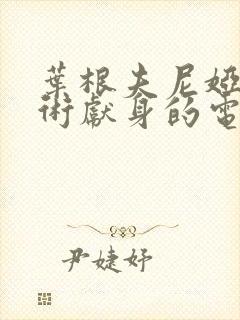 葉根夫尼婭
術獻身的電
尹婕妤